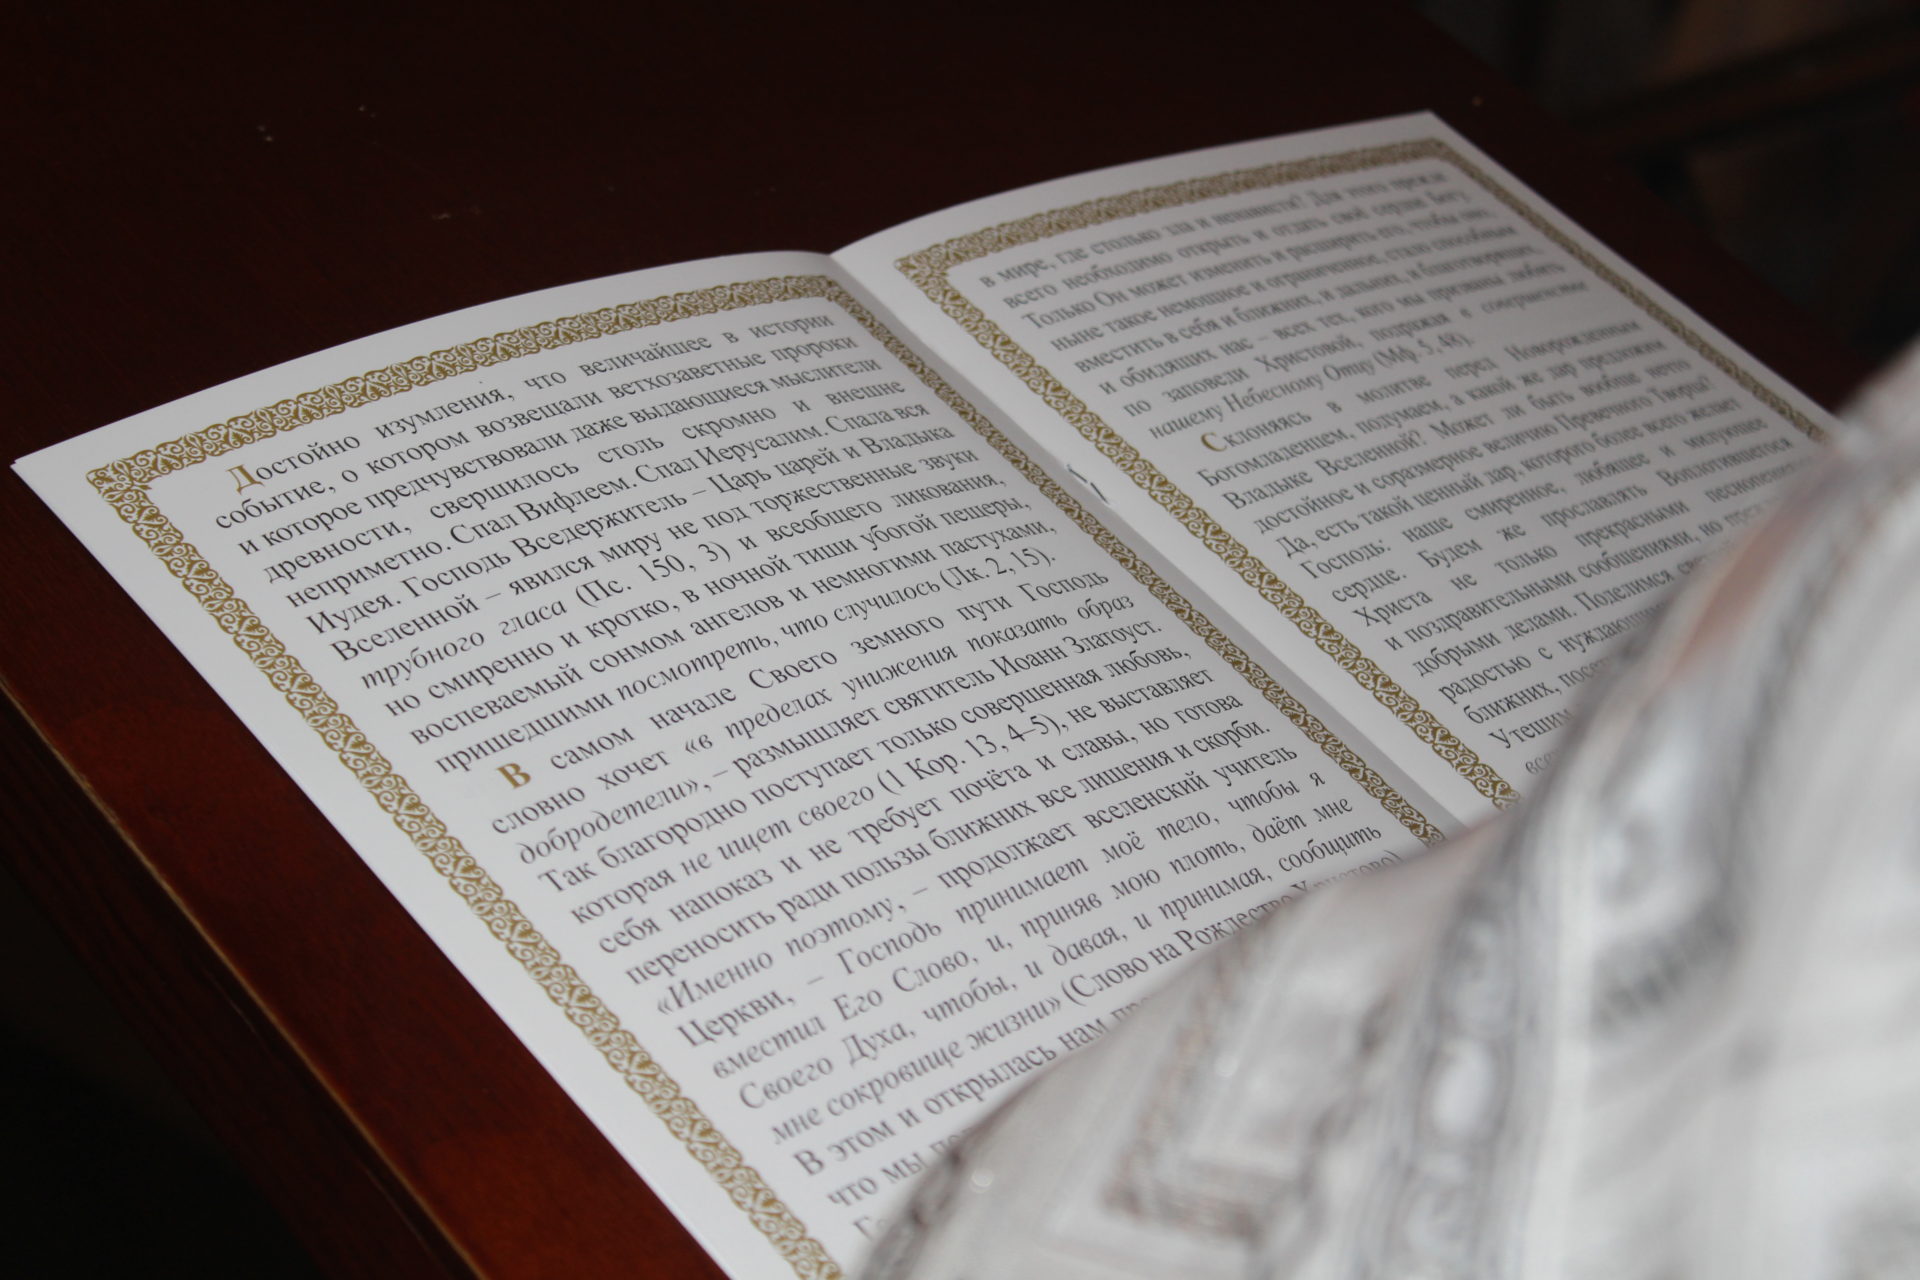 Достойно изумления, что величайшее в истории
событие, о котором возвещали ветхозаветные пророки
и которое предчувствовали даже выдающиеся мыслители
древности, свершилось столь скромно и внешне
неприметно. Спал Вифлеем. Спал Иерусалим. Спала вся
Иудея. Господь Вседержитель – Царь царей и Владыка
Вселенной – явился миру не под торжественные звуки
трубного гласа (Пс. 150, 3) и всеобщего ликования,
но смиренно и кротко, в ночной тиши убогой пещеры,
воспеваемый сонмом ангелов и немногими пастухами,
пришедшими посмотреть, что случилось (Лк. 2, 15).
В самом начале Своего земного пути Господь
словно хочет «в пределах унижения показать образ
добродетели», – размышляет святитель Иоанн Златоуст.
Так благородно поступает только совершенная любовь,
которая не ищет своего (1 Кор. 13, 4–5), не выставляет
себя напоказ и не требует почёта и славы, но готова
переносить ради пользы ближних все лишения и скорби.
«Именно поэтому, – продолжает вселенский учитель
Церкви, – Господь принимает моё тело, чтобы я
вместил Его Слово, и, приняв мою плоть, даёт мне
Своего Духа, чтобы, и давая, и принимая, сообщить
мне сокровище жизни» (Слово на Рождество Христово).
В этом и открылась нам
что мы
в мире, где столько зла и ненависти? Для этого прежде
всего необходимо открыть и отдать своё сердце Богу.
Только Он может изменить и расширить его, чтобы оно,
ныне такое немощное и ограниченное, стало способным
вместить в себя и ближних, и дальних, и благотворящих,
и обидящих нас – всех тех, кого мы призваны любить
по заповеди Христовой, подражая в совершенстве
нашему Небесному Отцу (Мф. 5, 48).
Склоняясь в молитве перед Новорожденным
Богомладенцем, подумаем, а какой же дар предложим
Владыке Вселенной? Может ли быть вообще нечто
достойное и соразмерное величию Превечного Творца?
Да, есть такой ценный дар, которого более всего желает
Господь: наше смиренное, любящее и милующее
сердце. Будем же прославлять Воплотившегося
Христа не только прекрасными песнопениями
и поздравительными сообщениями, но
добрыми делами. Поделимся
радостью с
ближних,
Утешим